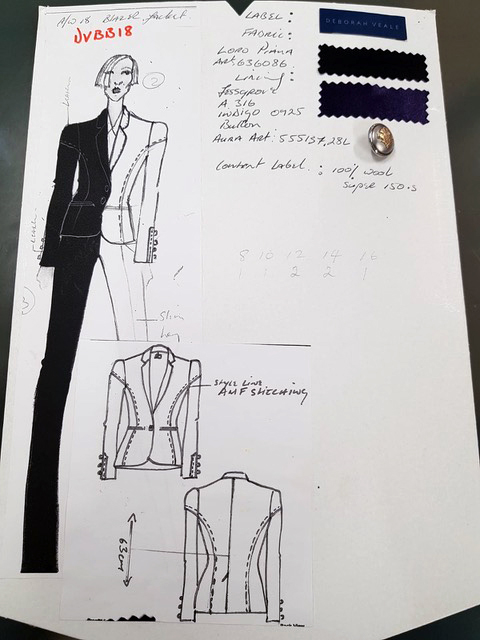 A/W 18 Blazer Jacket
DVBB18
2
LABEL:
DEBORAH VEALE
FABRIC:
LORO Piana
Art: 636086
Lining:
Jessgrove
A 316
INDIGO 0925
Button
AURA Art: 555137,28L
Content Label: 100% wool
Super 150.s
8 10 12 14 16
1 1 2 2 1
Slim
leg
STYLE LINE
AMF STITCHING
63cm